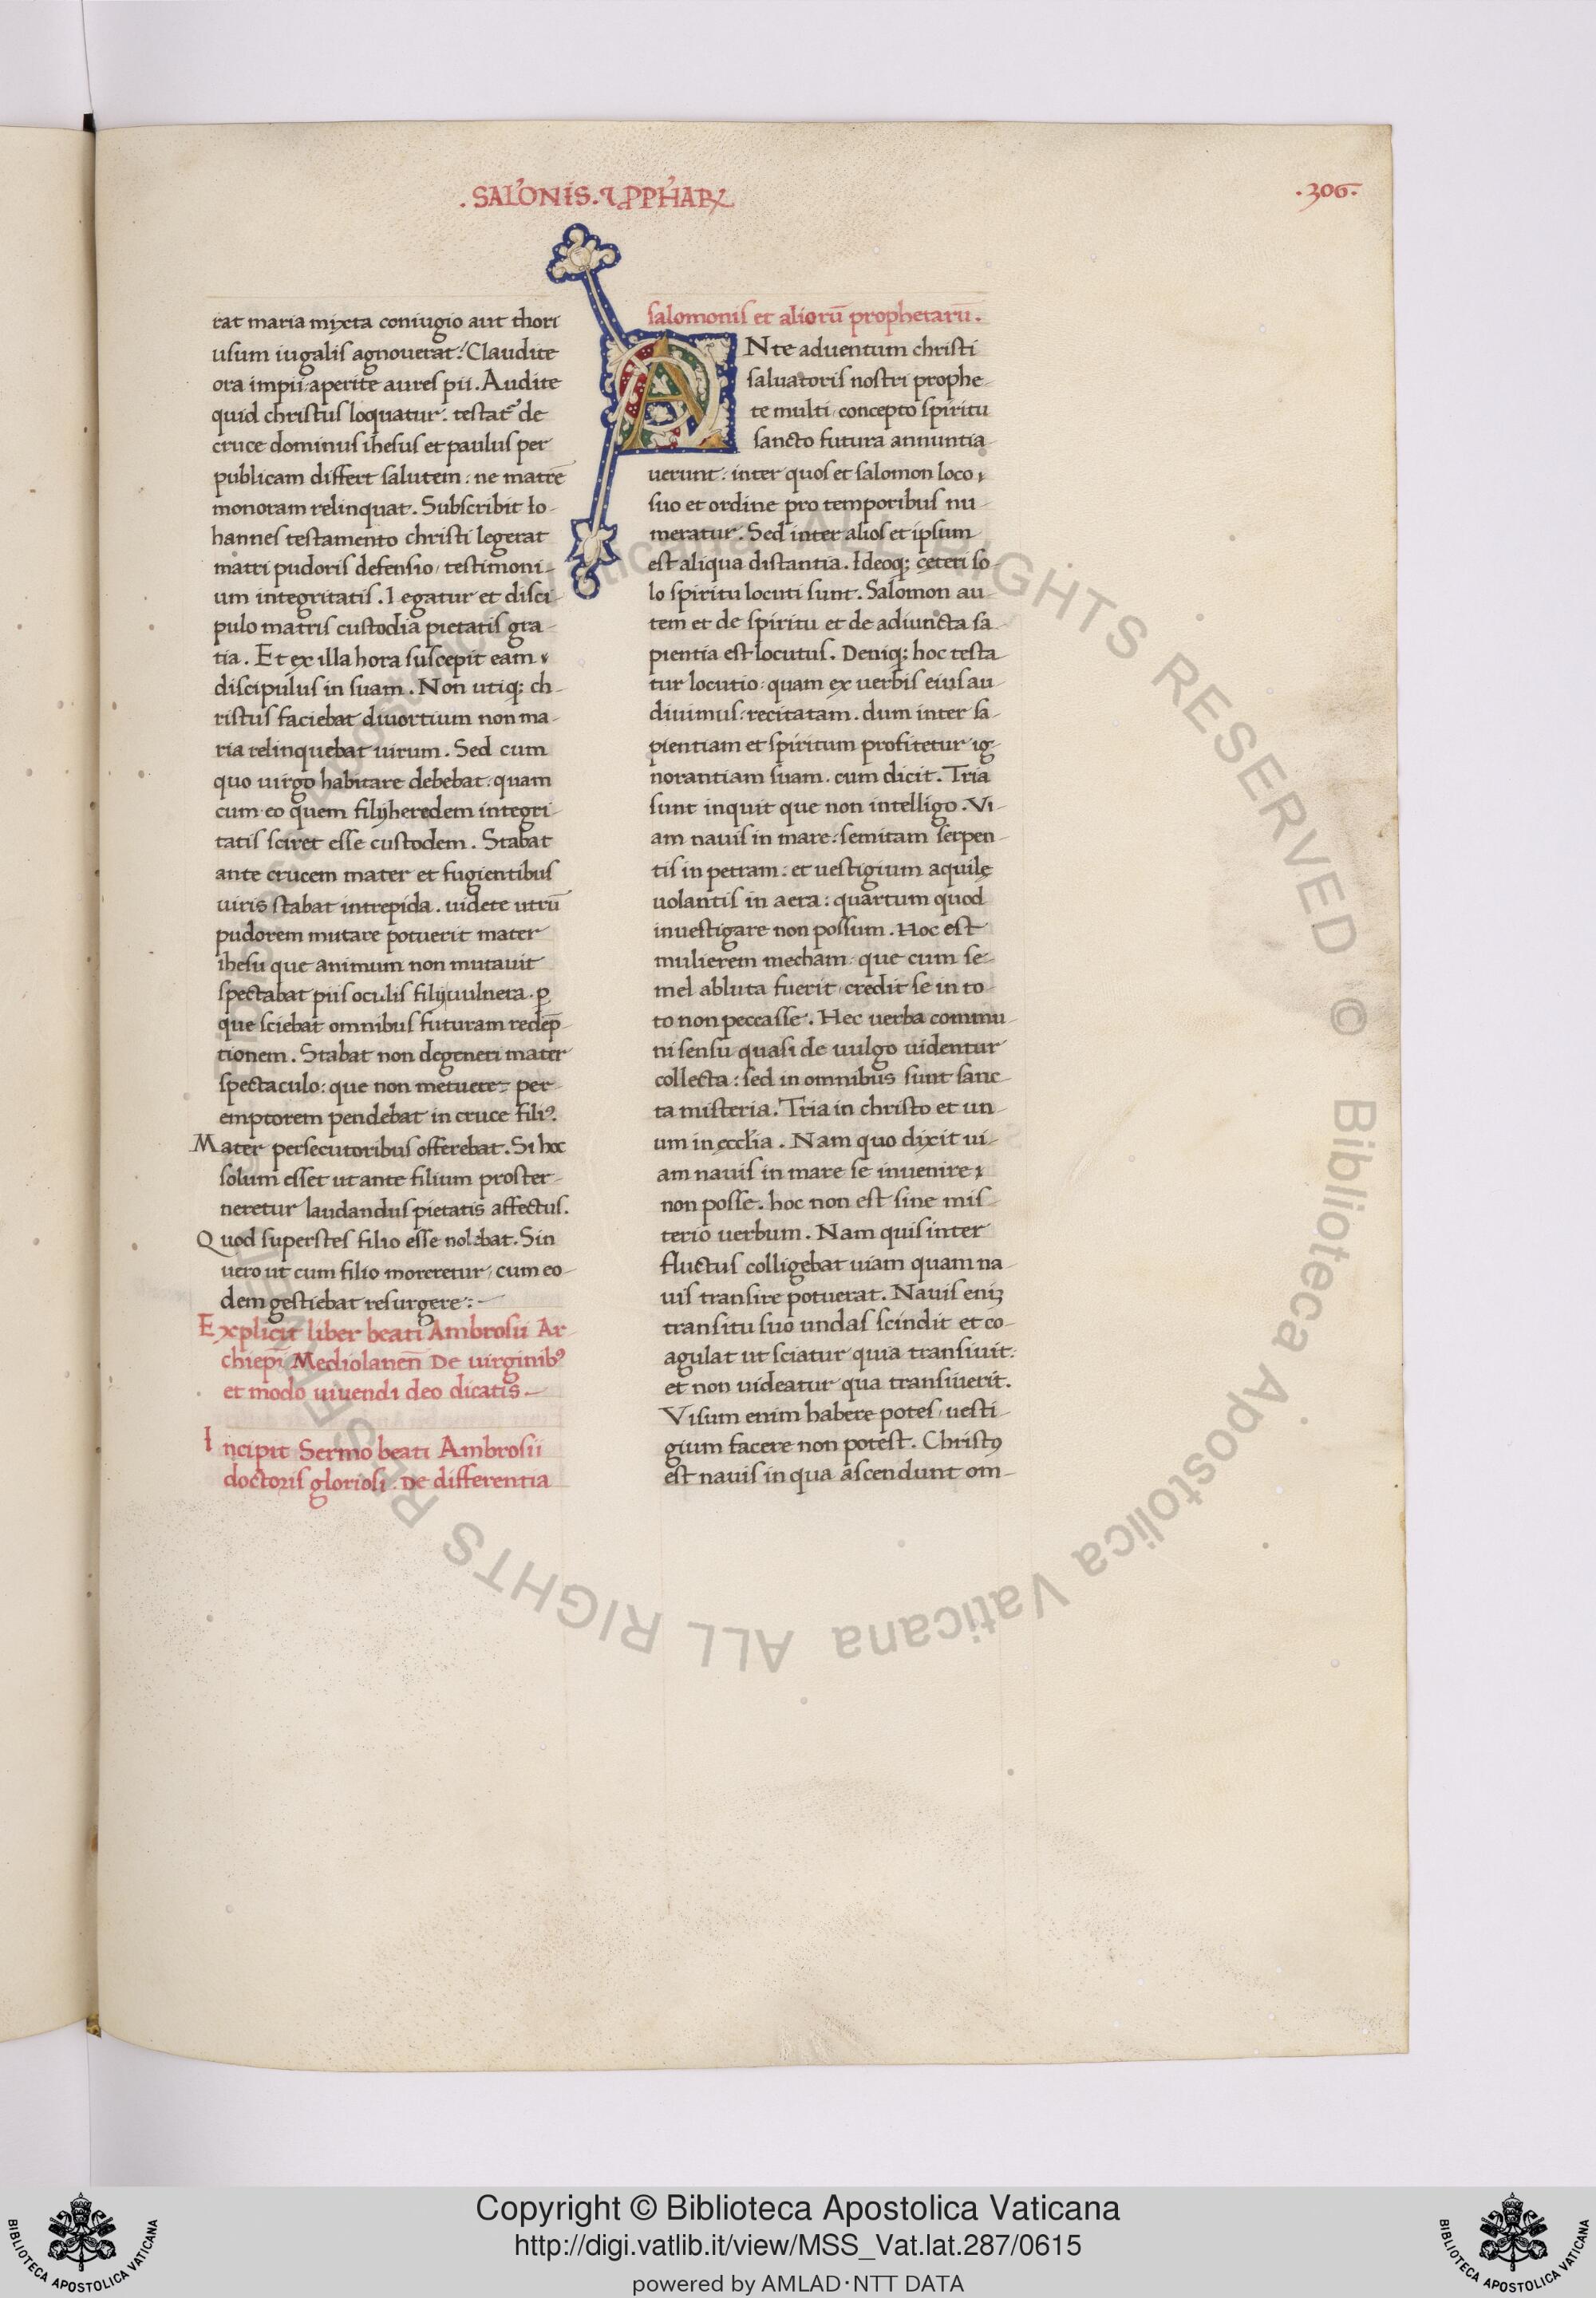 . SALONIS. ⁊ PPHAR
.306.
rat maria mixta coniugio aut thori
usum iugalis agnouerat: Claudite
ora impii: aperite aures pii. Audite
quid christus loquatur. testat᷑ de
cruce dominus ihesus et paulus per
publicam differt salutem: ne matrē
inhonoram relinquat. Subscribit Io-
hannes testamento christi legerat
matri pudoris defensio, testimoni-
um integritatis. Legatur et disci-
pulo matris custodia pietatis gra-
tia. Et ex illa hora suscepit eam
discipulus in suam. Non utiq; ch-
ristus faciebat diuortium non ma-
ria relinquebat uirum. Sed cum
quo uirgo habitare debebat: quam
cum eo quem filij heredem integri-
tatis sciret esse custodem. Stabat
ante crucem mater et fugientibus
uiris stabat intrepida. uidete utrū
pudorem mutare potuerit mater
ihesu que animum non mutauit
spectabat piis oculis filij uulnera. ꝑ
que sciebat omnibus futuram redēp-
tionem. Stabat non degeneri mater
spectaculo: que non metueret per-
emptorem pendebat in cruce filiꝰ.
Mater persecutoribus offerebat. Si hoc
solum esset ut ante filium proster-
neretur laudandus pietatis affectus.
Quod superstes filio esse nolebat. Sin
uero ut cum filio moreretur, cum eo-
dem gestiebat resurgere:-
Explicit liber beati Ambrosii Ar-
chiepī Mediolaneñ De uirginibꝰ
et modo uiuendi deo dicatis.-
Incipit Sermo beati Ambrosii
doctoris gloriosi. De differentia
salomonis et aliorū prophetarū.
ANte aduentum christi
saluatoris nostri prophe-
te multi, concepto spiritu
sancto futura annuntia
uerunt: inter quos et salomon loco
suo et ordine pro temporibus nu-
meratur. Sed inter alios et ipsum
est aliqua distantia. Ideoq; ceteri so-
lo spiritu locuti sunt. Salomon au-
tem et de spiritu et de adiuncta sa-
pientia est locutus. Deniq; hoc testa
tur locutio: quam ex uerbis eius au-
diuimus: recitatam. dum inter sa-
pientiam et spiritum profitetur ig-
norantiam suam. cum dicit. Tria
sunt inquit que non intelligo. Vi-
am nauis in mare: semitam serpen-
tis in petram: et uestigium aquilę
uolantis in aera: quartum quod
inuestigare non possum. Hoc est
mulierem mecham: que cum se-
mel abluta fuerit, credit se in to-
to non peccasse. Hec uerba commu-
ni sensu quasi de uulgo uidentur
collecta: sed in omnibus sunt sanc-
ta misteria. Tria in christo et un-
um in eccl̄ia. Nam quo dixit ui-
am nauis in mare se inuenire
non posse. hoc non est sine mis-
terio uerbum. Nam quis inter
fluctus colligebat uiam quam na-
uis transire potuerat. Nauis eniꝫ
transitu suo undas scindit et co-
agulat ut sciatur quia transiuit:
et non uideatur qua transiuerit.
Visum enim habere potes, uesti-
gium facere non potest. Christꝰ
est nauis in qua ascendunt om-
© Biblioteca Apostolica Vaticana ALL RIGHTS RESERVED © Biblioteca Apostolica Vaticana ALL RIGHTS RESERVED
Copyright © Biblioteca Apostolica Vaticana
http://digi.vatlib.it/view/MSS_Vat.lat.287/0615
powered by AMLAD·NTT DATA
BIBLIOTECA APOSTOLICA VATICANA
BIBLIOTECA APOSTOLICA VATICANA